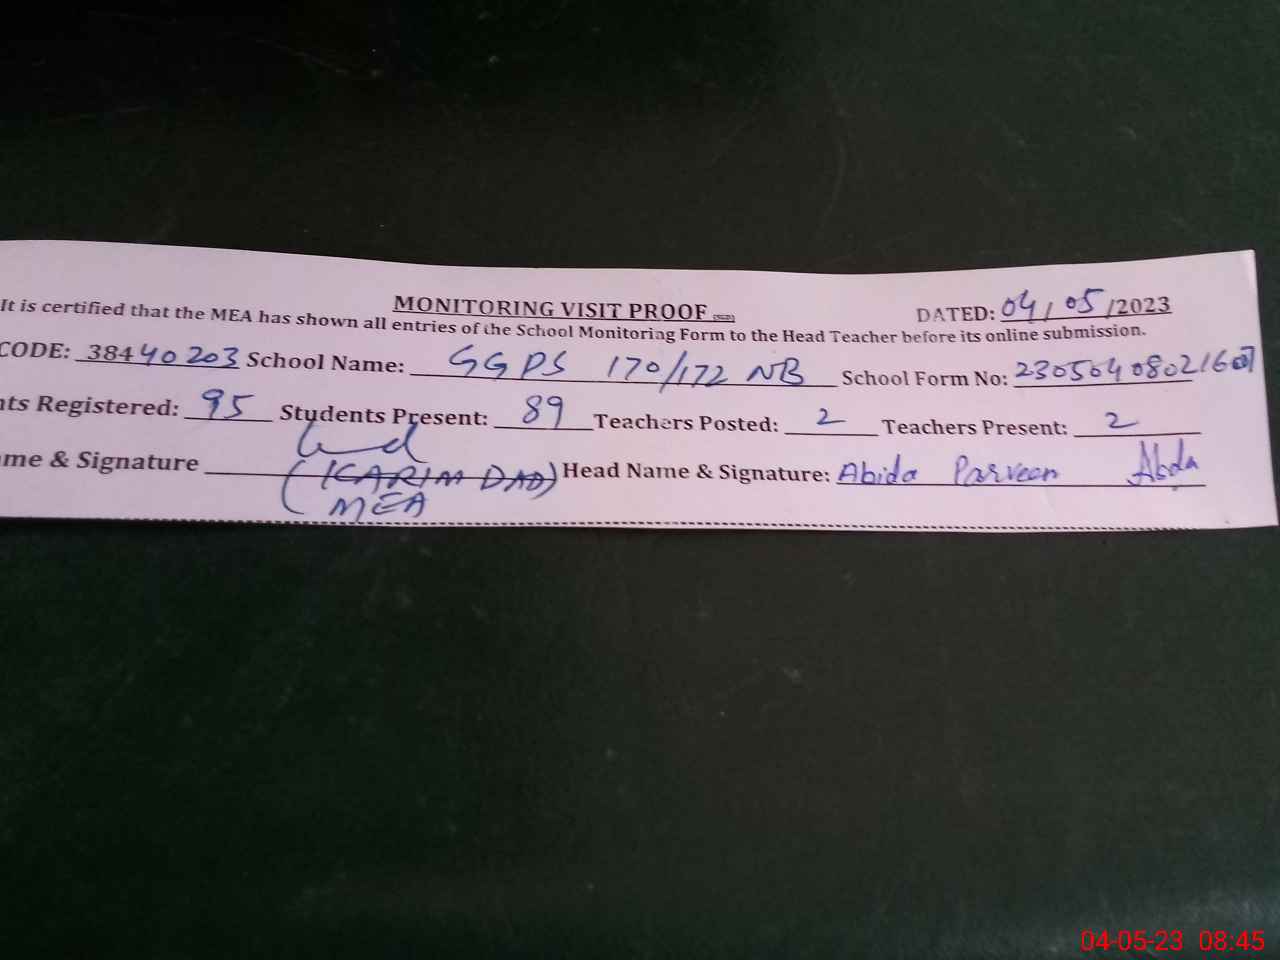 MONITORING VISIT PROOF DATED: 04/05/2023
It is certified that the MEA has shown all entries of the School Monitoring Form to the Head Teacher before its online submission.
CODE: 38440203 School Name: GGPS 170/172 NB School Form No:
nts Registered: 95 Students Present: 89 Teachers Posted: 2 Teachers Present: 2
me & Signature (KARIM DAD) Head Name & Signature: Abida Parveen Abda
MEA
04-05-23 08:45